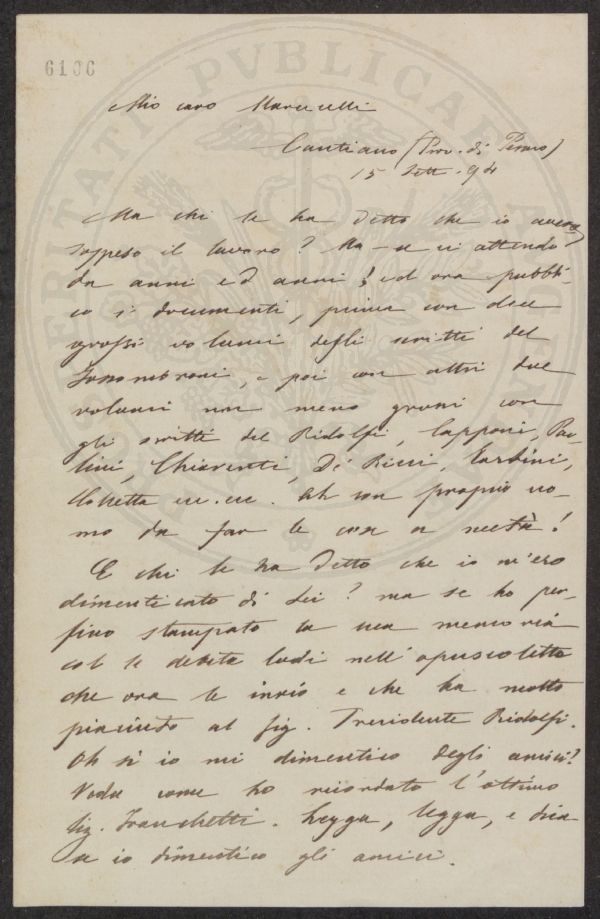 6106
Mio caro Marucelli
Cantiano (Prov. di Pesaro)
15 Sett. 94
Ma chi le ha detto che io avevo
sospeso il lavoro? Ma se ci attendo
da anni ed anni! ed ora pubbli-
co i documenti, prima con due
grossi volumi degli scritti del
Fossombroni, e poi con altri due
volumi non meno grossi con
gli scritti del Ridolfi, Capponi, Pao-
lini, Chiarenti, De Ricci, Tartini,
ecc. ecc. Ah son proprio uo-
mo da far le cose a metà!
E chi le ha detto che io m'ero
dimenticato di Lei? ma se ho per-
fino stampato la sua memoria
col le debite lodi nell'opuscoletto
che ora le invio e che ha molto
piaciuto al Sig. Presidente Ridolfi.
Oh sì io mi dimentico degli amici!
Veda come ho ricordato l'ottimo
Sig. Franchetti. Legga, legga, e dica
se io dimentico gli amici.